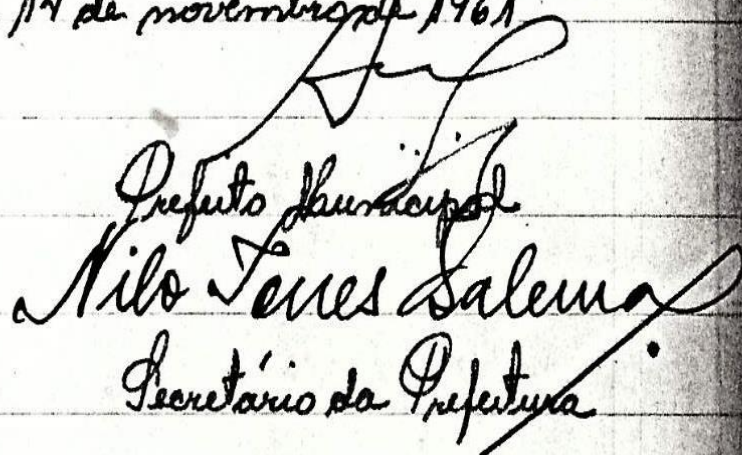 de novembro de 1961
Prefeito Municipal
Nilo Torres Salema
Secretário da Prefeitura